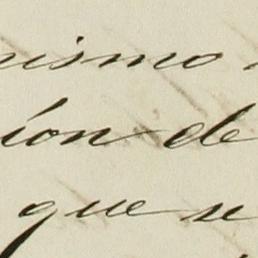 nismo
ión de
que se